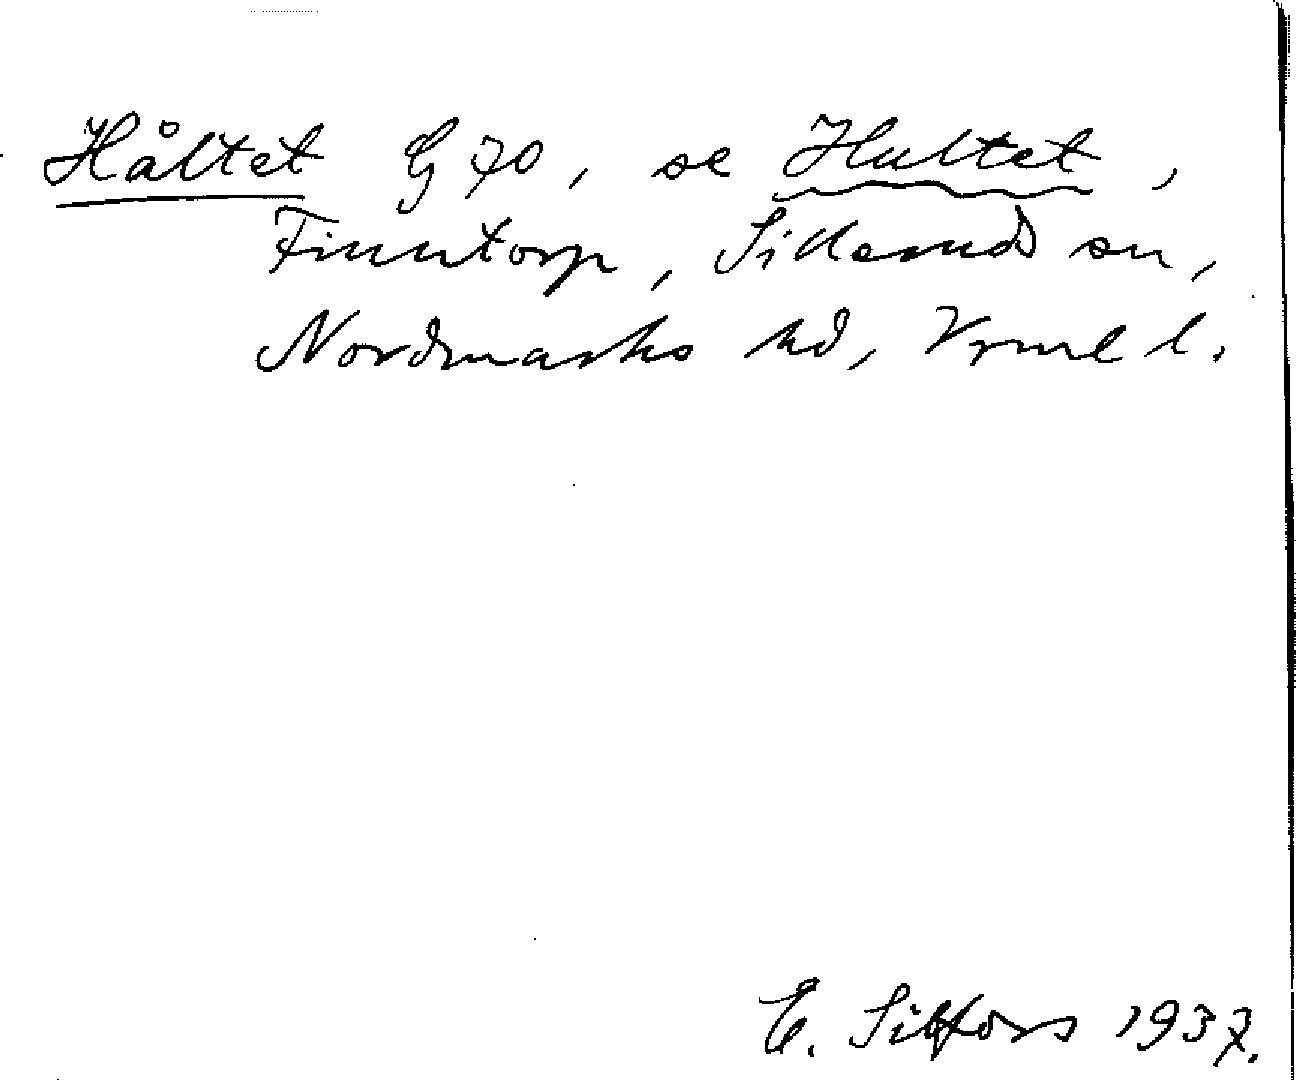 Håltet G 70, se Hultet,
Finntorp, Sillerud sn,
Nordmarks hd, Vrml l.
E. Silfors 1937.